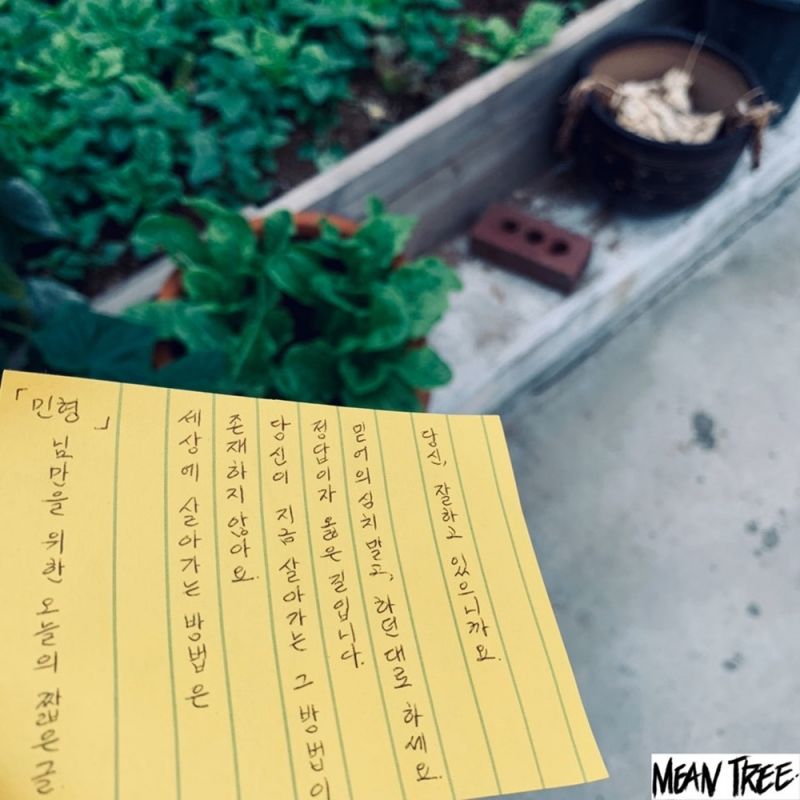 「민형」 님만을 위한 오늘의 짧은 글
세상에 살아가는 방법은
존재하지 않아요.
당신이 지금 살아가는 그 방법이
정답이자 옳은 길입니다.
믿어의심치 말고, 하던 대로 하세요.
당신, 잘하고 있으니까요.
MEAN TREE.